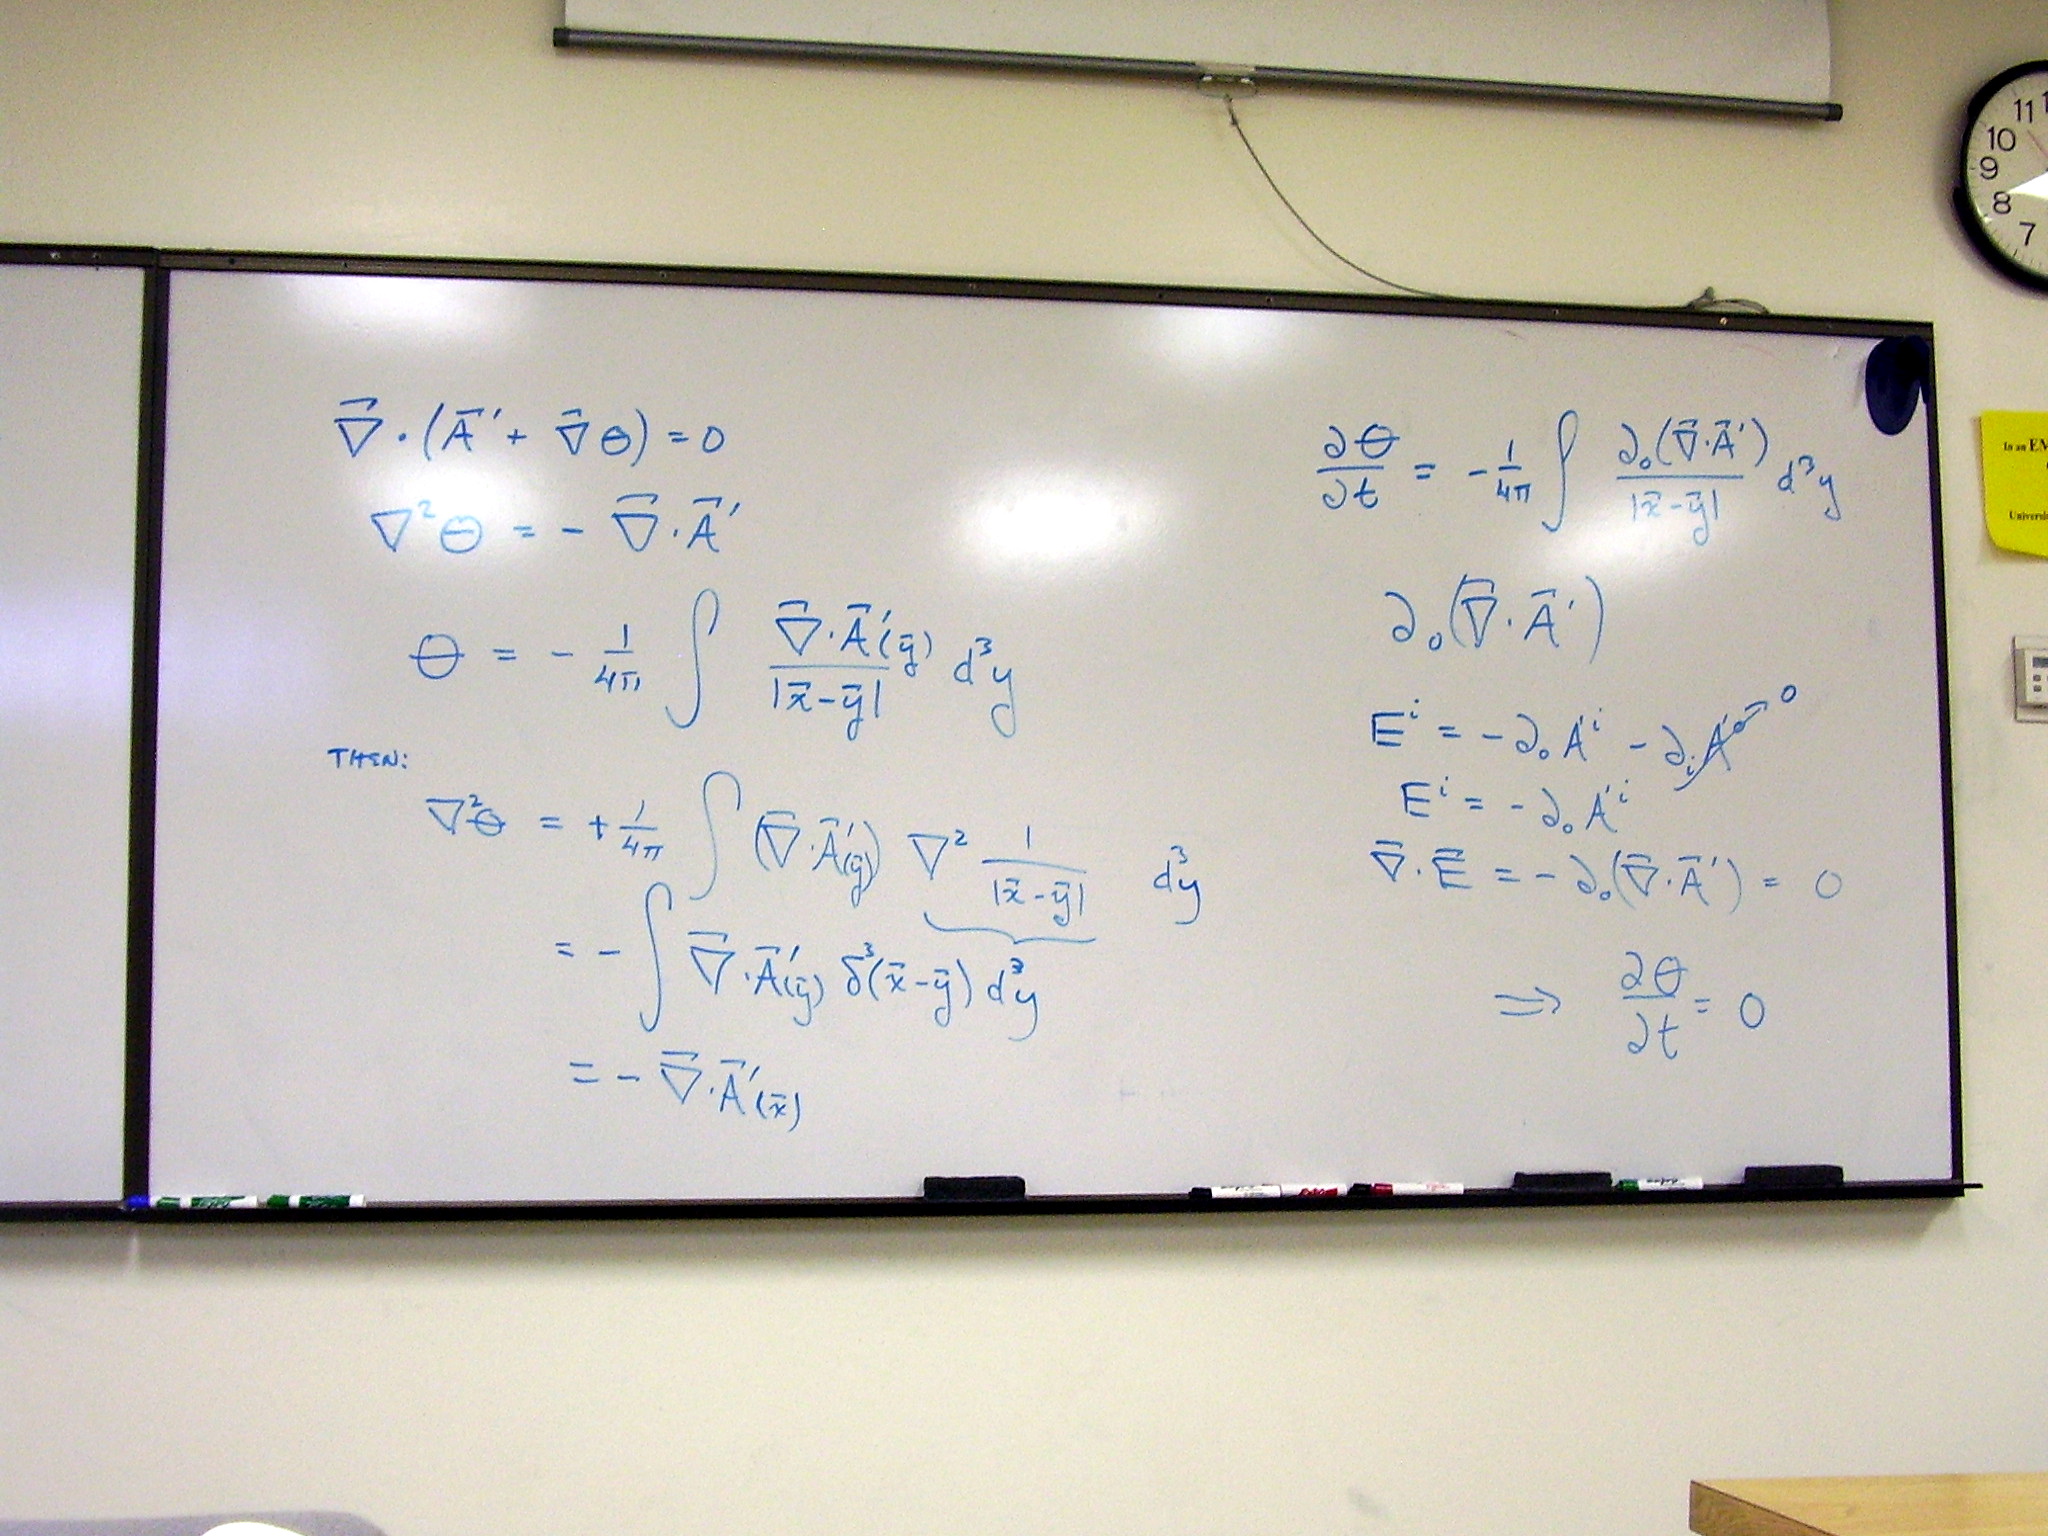 ∇⃗·(A⃗′ + ∇⃗θ) = 0
∇²θ = − ∇⃗·A⃗′
θ = − 1/4π ∫ ∇⃗·A⃗′(y⃗) / |x⃗−y⃗| d³y
THEN:
∇²θ = + 1/4π ∫ (∇⃗·A⃗′(y⃗)) ∇² 1/|x⃗−y⃗| d³y
= − ∫ ∇⃗·A⃗′(y⃗) δ³(x⃗−y⃗) d³y
= − ∇⃗·A⃗′(x⃗)
∂θ/∂t = − 1/4π ∫ ∂₀(∇⃗·A⃗′) / |x⃗−y⃗| d³y
∂₀(∇⃗·A⃗′)
Eⁱ = −∂₀A′ⁱ − ∂ᵢA′⁰ → 0
Eⁱ = −∂₀A′ⁱ
∇⃗·E⃗ = −∂₀(∇⃗·A⃗′) = 0
⟹ ∂θ/∂t = 0
11
10
9
8
7
In an EM